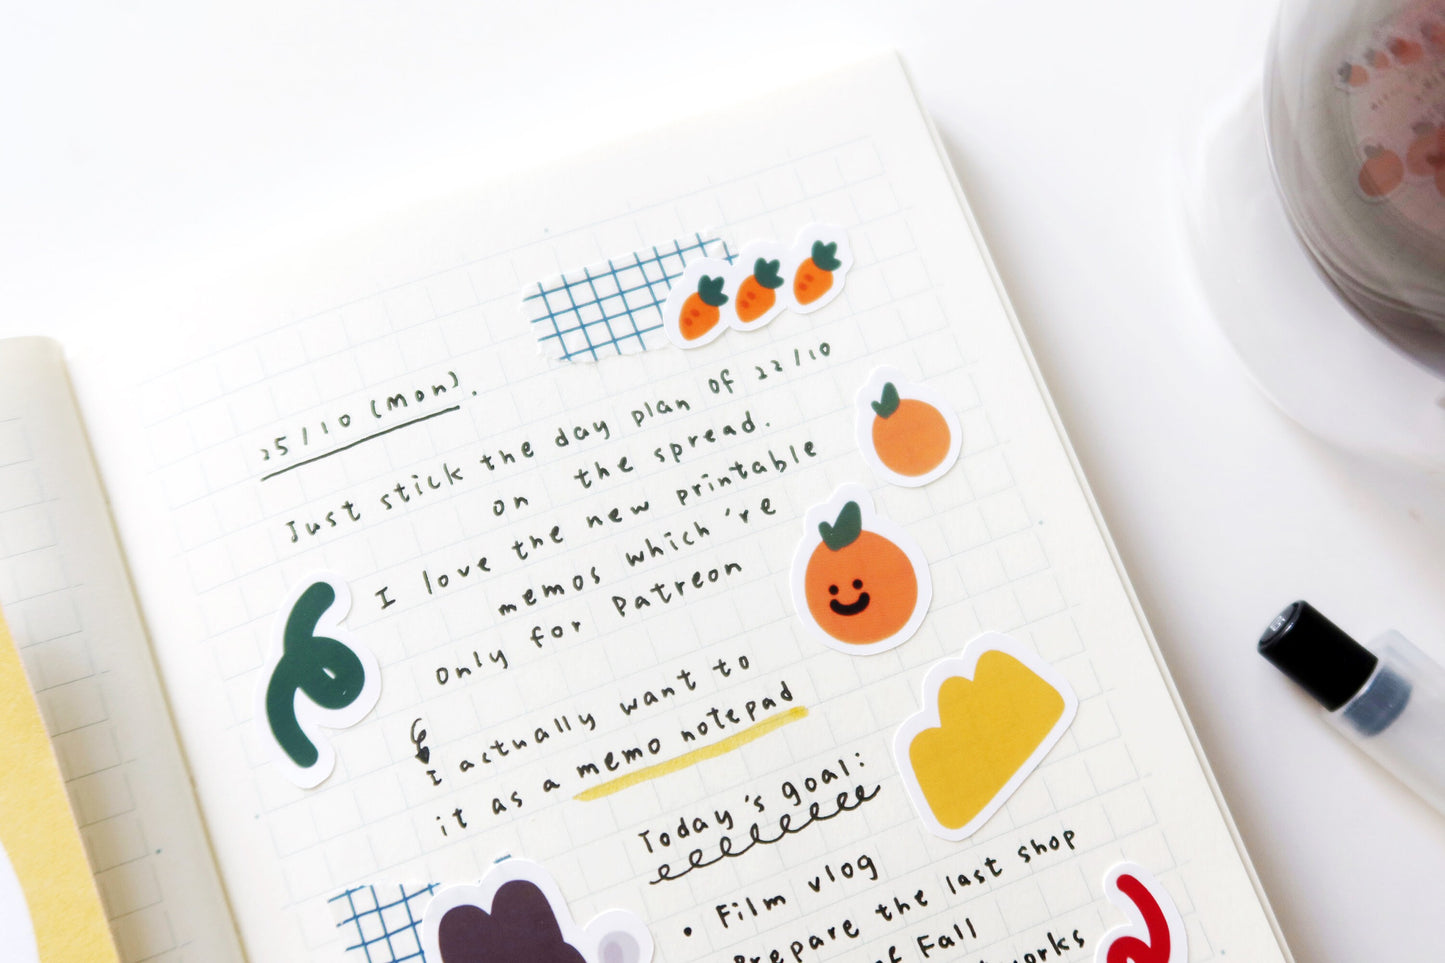 25/10 (Mon).
Just stick the day plan of 22/10
on the spread.
I love the new printable
memos which 're
only for Patreon
I actually want to
it as a memo notepad
Today's goal:
• Film vlog
Prepare the last shop
of Fall